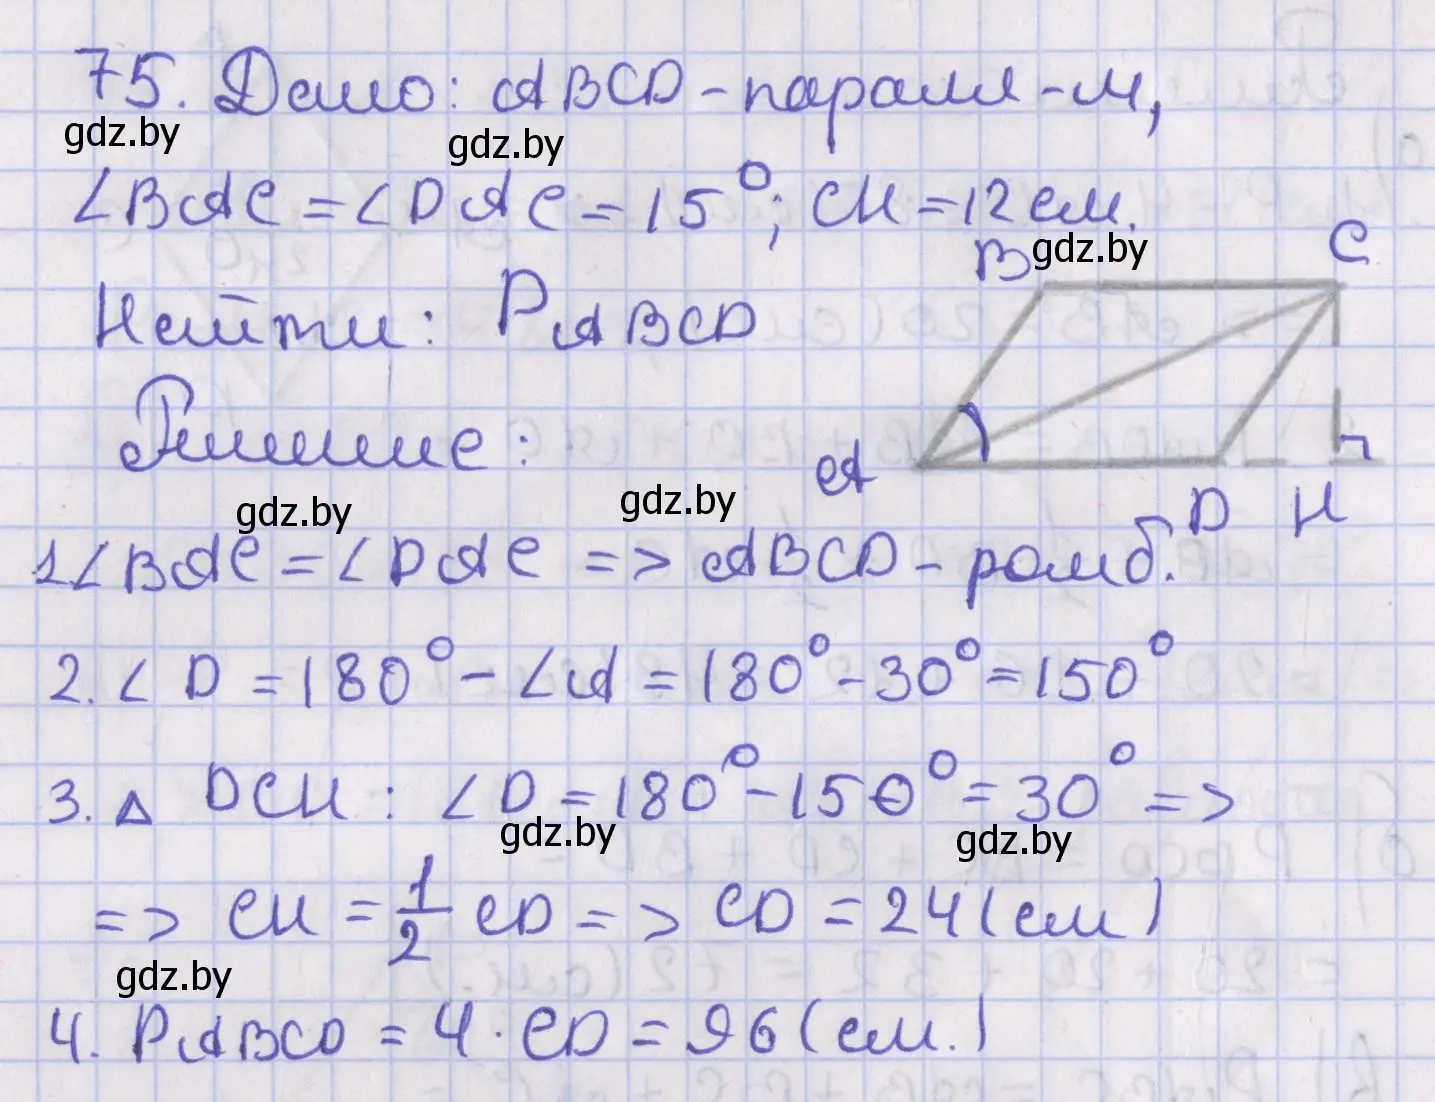 75. Дано: ABCD - паралл-м,
gdz.by gdz.by
∠BAC = ∠DAC = 15°; CH = 12 см.
gdz.by
B C
Найти: P ABCD
Решение:
A D H
gdz.by gdz.by
1. ∠BAC = ∠DAC => ABCD - ромб.
2. ∠D = 180° - ∠A = 180° - 30° = 150°
3. Δ DCH: ∠D = 180° - 150° = 30° =>
gdz.by gdz.by
=> CH = 1/2 CD => CD = 24 (см)
gdz.by
4. P ABCD = 4 · CD = 96 (см.)